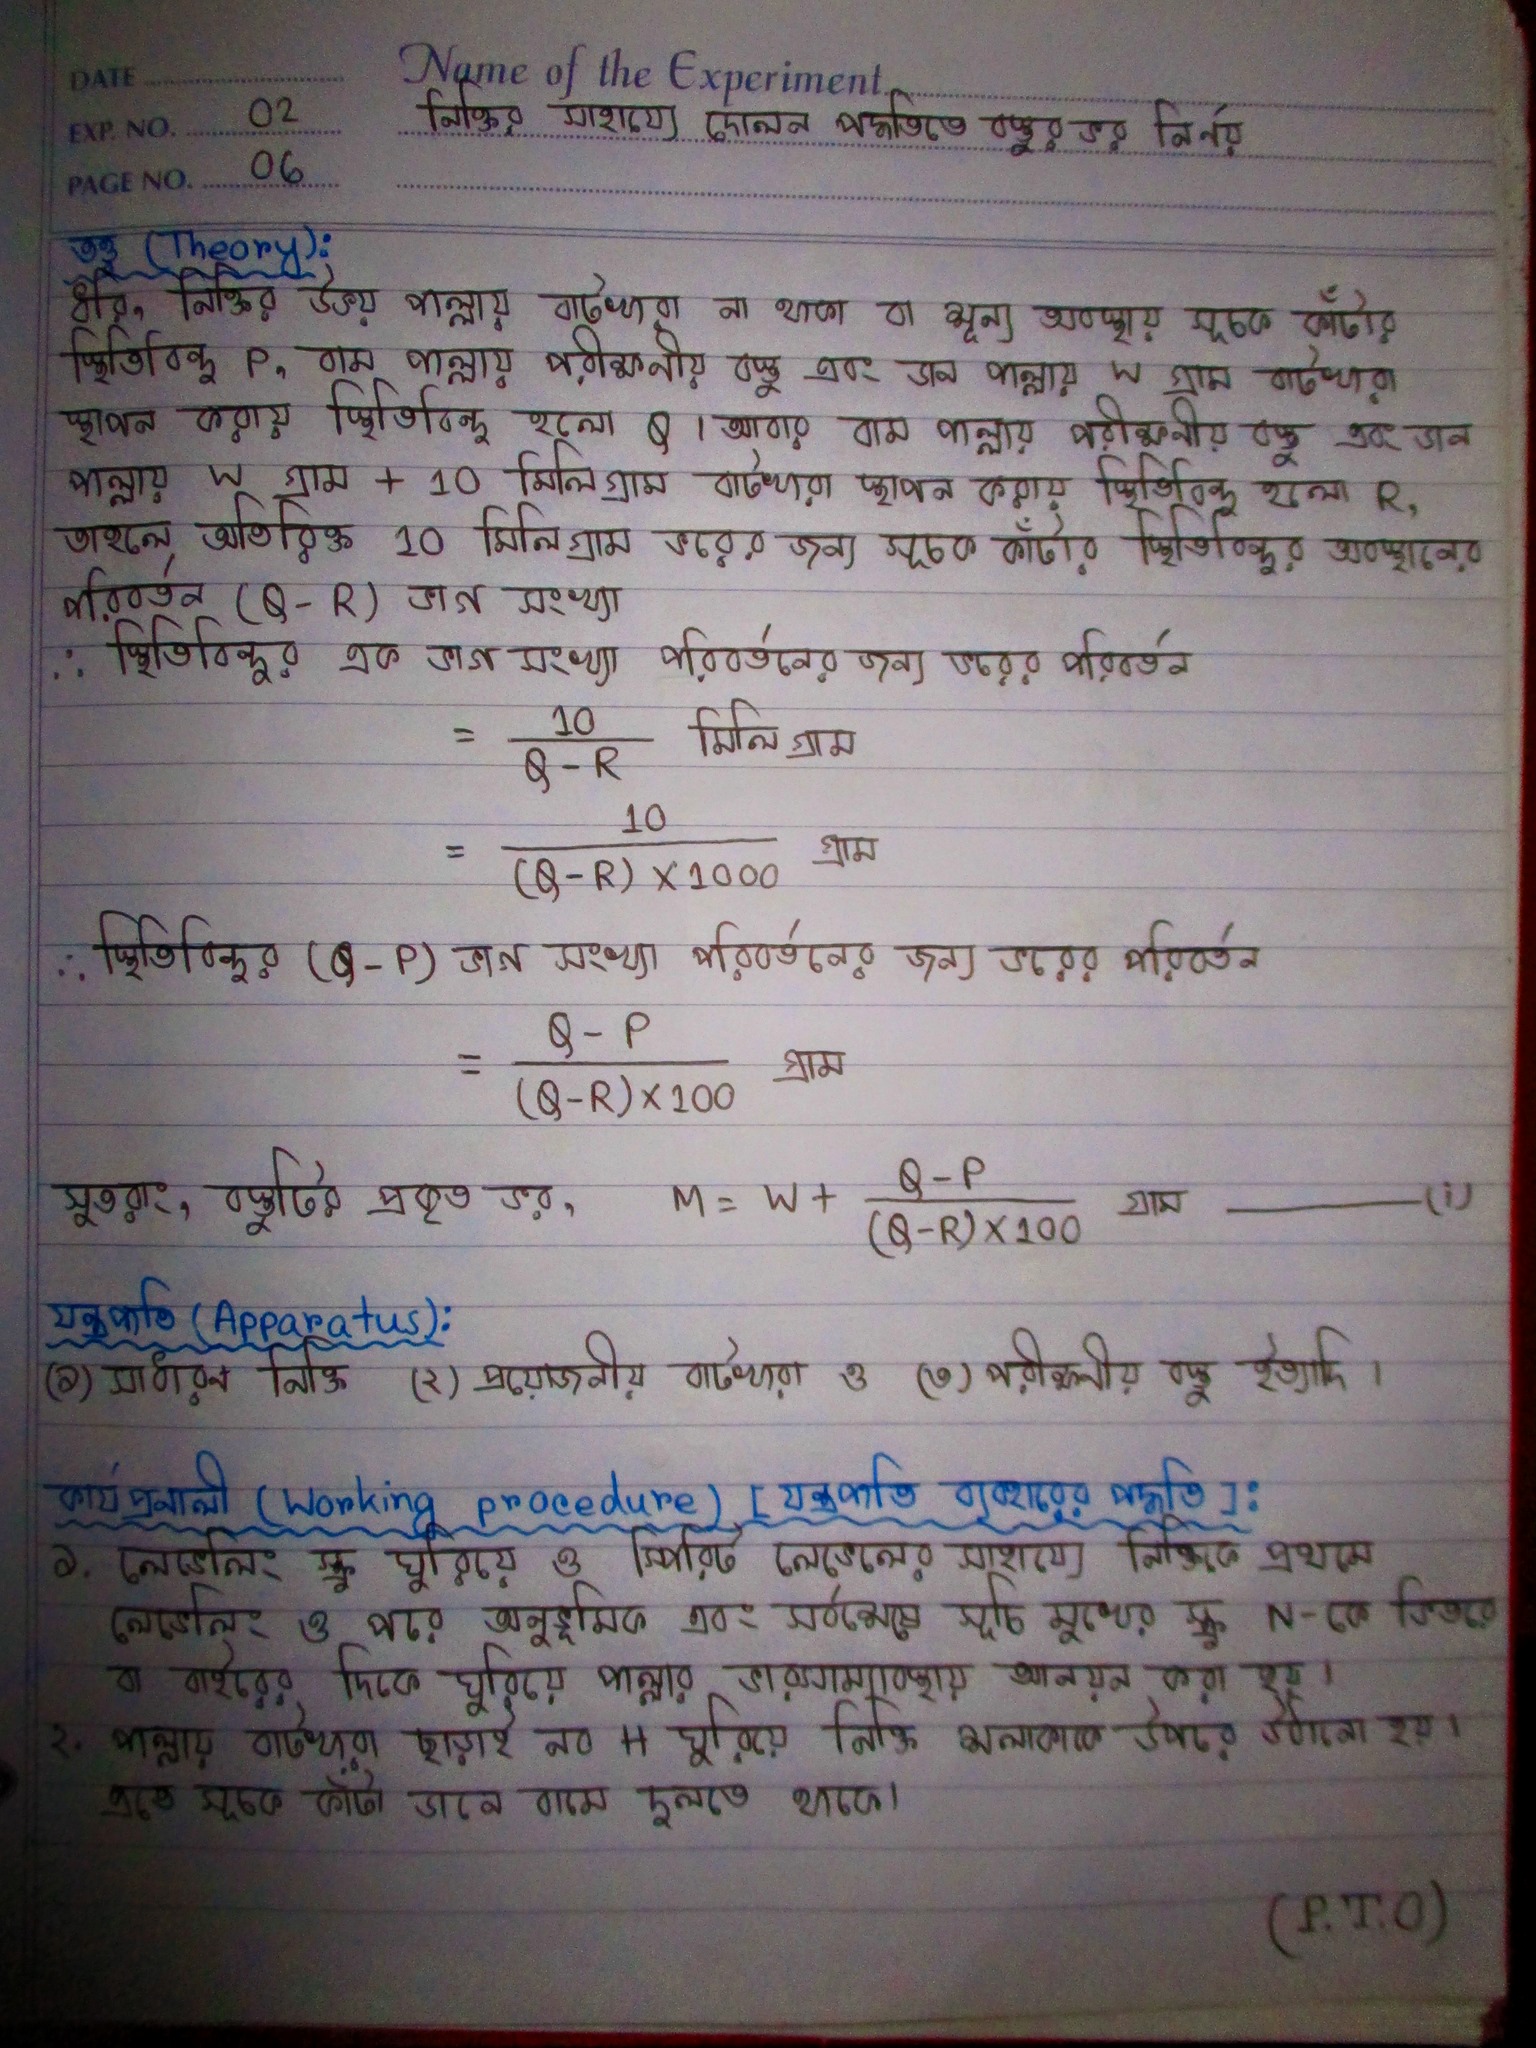 Name of the Experiment
DATE
EXP. NO. 02 নিক্তির সাহায্যে দোলন পদ্ধতিতে বস্তুর ভর নির্নয়
PAGE NO. 06
তত্ত্ব (Theory):
ধরি, নিক্তির উভয় পাল্লায় বাটখারা না থাকা বা শূন্য অবস্থায় সূচক কাঁটার
স্থিতিবিন্দু P, বাম পাল্লায় পরীক্ষনীয় বস্তু এবং ডান পাল্লায় W গ্রাম বাটখারা
স্থাপন করায় স্থিতিবিন্দু হলো Q । আবার বাম পাল্লায় পরীক্ষনীয় বস্তু এবং ডান
পাল্লায় W গ্রাম + 10 মিলিগ্রাম বাটখারা স্থাপন করায় স্থিতিবিন্দু হলো R,
তাহলে অতিরিক্ত 10 মিলিগ্রাম ভরের জন্য সূচক কাঁটার স্থিতিবিন্দুর অবস্থানের
পরিবর্তন (Q - R) ভাগ সংখ্যা
∴ স্থিতিবিন্দুর এক ভাগ সংখ্যা পরিবর্তনের জন্য ভরের পরিবর্তন
= 10 / (Q - R) মিলি গ্রাম
= 10 / ((Q-R) × 1000) গ্রাম
∴ স্থিতিবিন্দুর (Q - P) ভাগ সংখ্যা পরিবর্তনের জন্য ভরের পরিবর্তন
= (Q - P) / ((Q-R) × 100) গ্রাম
সুতরাং, বস্তুটির প্রকৃত ভর, M = W + (Q - P) / ((Q-R) × 100) গ্রাম ———(i)
যন্ত্রপাতি (Apparatus):
(১) সাধারন নিক্তি (২) প্রয়োজনীয় বাটখারা ও (৩) পরীক্ষনীয় বস্তু ইত্যাদি ।
কার্যপ্রনালী (Working procedure) [যন্ত্রপাতি ব্যবহারের পদ্ধতি]:
১. লেভেলিং স্ক্রু ঘুরিয়ে ও স্পিরিট লেভেলের সাহায্যে নিক্তিকে প্রথমে
লেভেলিং ও পরে অনুভূমিক এবং সর্বশেষে সূচি মুখের স্ক্রু N-কে ভিতরে
বা বাইরের দিকে ঘুরিয়ে পাল্লার ভারসাম্যাবস্থায় আনয়ন করা হয় ।
২. পাল্লায় বাটখারা ছাড়াই নব H ঘুরিয়ে নিক্তি শলাকাকে উপরে উঠানো হয় ।
এতে সূচক কাঁটা ডানে বামে দুলতে থাকে।
(P.T.O)